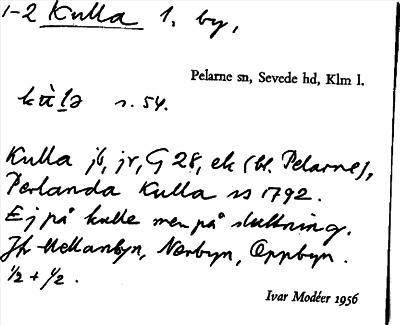 1-2 Kulla 1, by,
Pelarne sn, Sevede hd, Klm l.
s. 54.
Kulla jb, jr, G 28, ek (bl. Pelarne),
Perlanda Kulla ss 1792.
Ej på kulle men på sluttning.
Jfr Mellanbyn, Norrbyn, Oppbyn.
1/2 + 1/2.
Ivar Modéer 1956